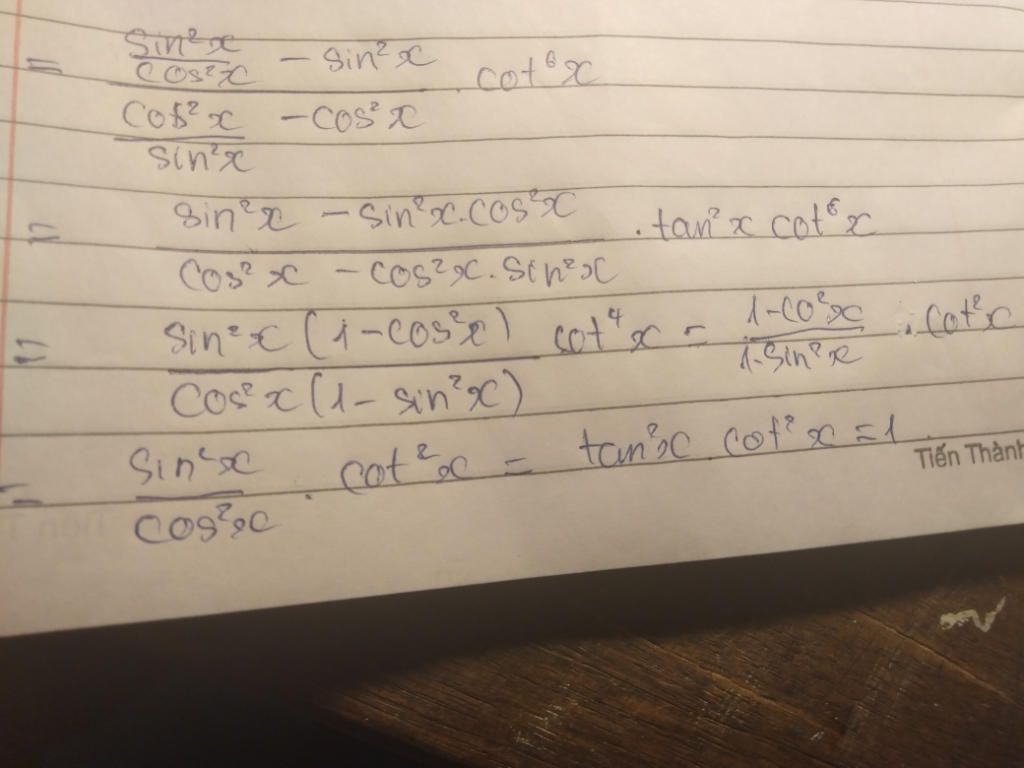 = (sin²x/cos²x - sin²x)/(cos²x/sin²x - cos²x) . cot⁶x
= (sin²x - sin²x.cos²x)/(cos²x - cos²x.sin²x) . tan²x cot⁶x
= sin²x(1-cos²x)/cos²x(1-sin²x) cot⁴x = (1-co²x)/(1-sin²x) . cot²x
= sin²x/cos²x . cot²x = tan²x cot²x = 1
Tiến Thành